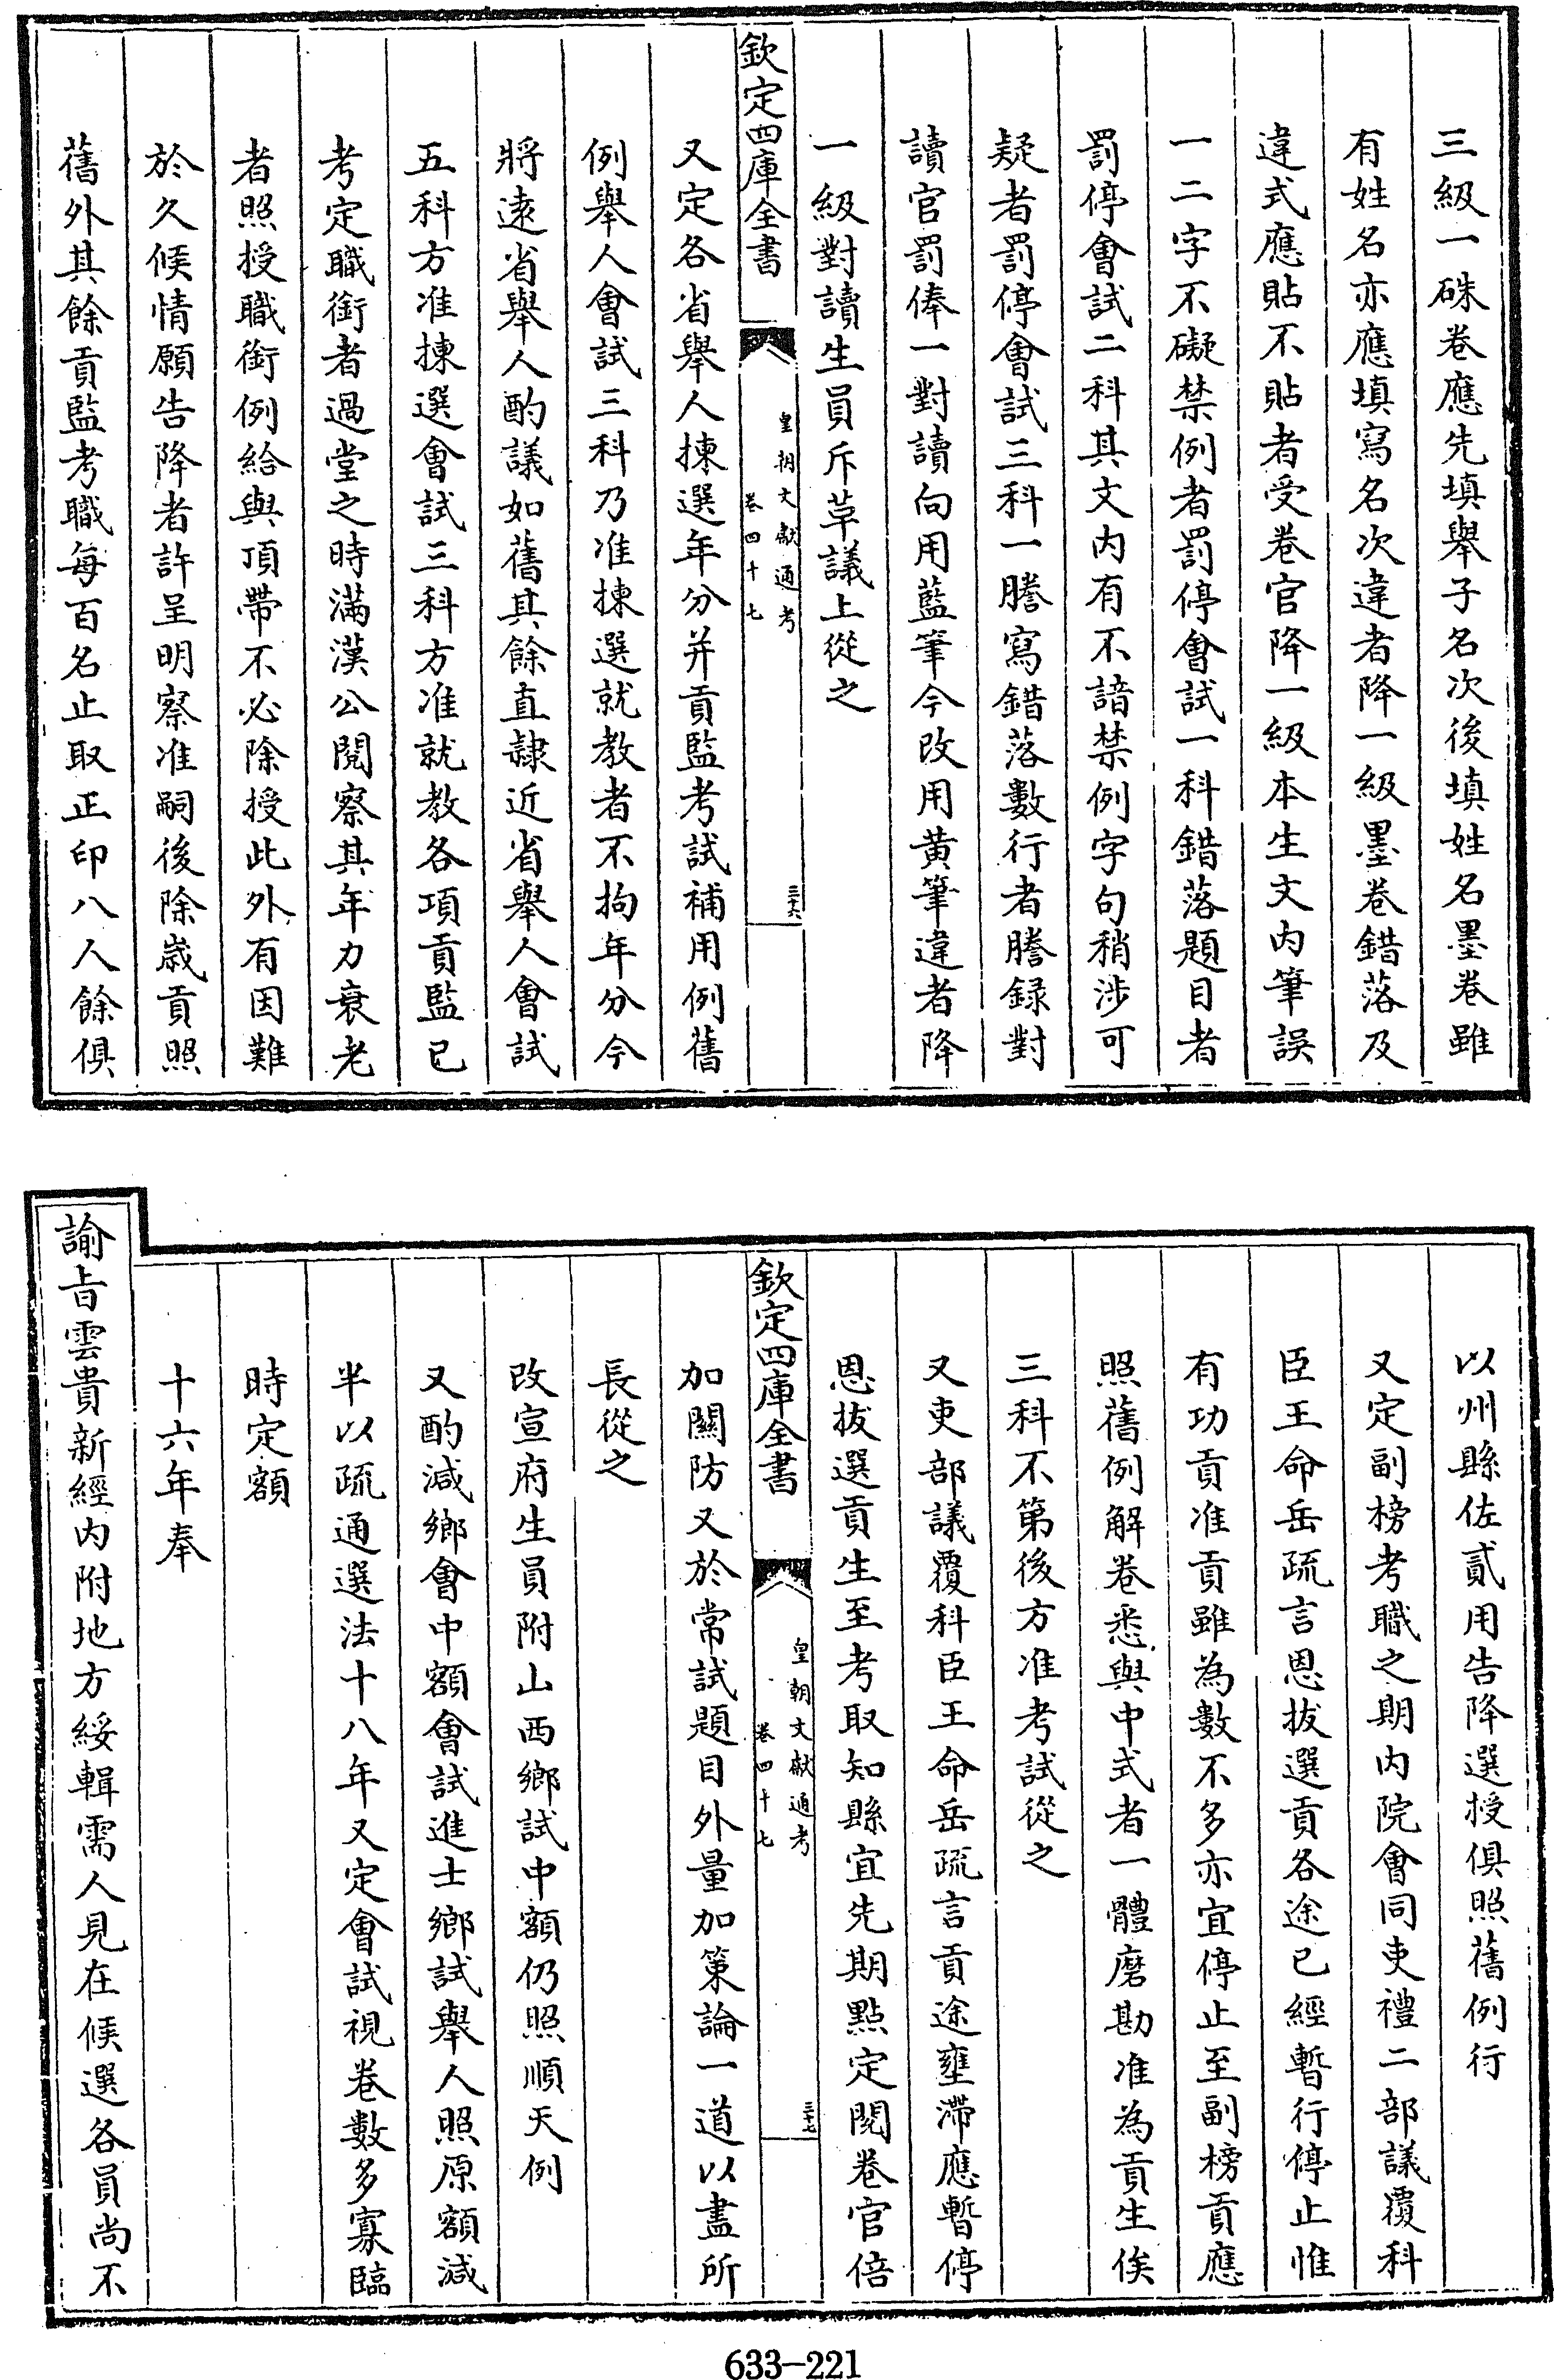 三級一硃卷應先填舉子名次後填姓名墨卷雖
有姓名亦應填寫名次違者降一級墨卷錯落及
違式應貼不貼者受卷官降一級本生文内筆誤
一二字不礙禁例者罰停會試一科錯落題目者
罰停會試二科其文内有不諳禁例字句稍涉可
疑者罰停會試三科一謄寫錯落數行者謄録對
讀官罰俸一對讀向用藍筆今改用黄筆違者降
一級對讀生員斥革議上從之
欽定四庫全書
皇朝文獻通考
卷四十七
三十六
又定各省舉人揀選年分并貢監考試補用例舊
例舉人會試三科乃准揀選就教者不拘年分今
將遠省舉人酌議如舊其餘直隷近省舉人會試
五科方准揀選會試三科方准就教各項貢監已
考定職銜者過堂之時滿漢公閱察其年力衰老
者照授職銜例給與頂帶不必除授此外有因難
於久候情願告降者許呈明察准嗣後除歲貢照
舊外其餘貢監考職每百名止取正印八人餘俱
以州縣佐貳用告降選授俱照舊例行
又定副榜考職之期内院會同吏禮二部議覆科
臣王命岳疏言恩拔選貢各途已經暫行停止惟
有功貢准貢雖為數不多亦宜停止至副榜貢應
照舊例解卷悉與中式者一體磨勘准為貢生俟
三科不第後方准考試從之
又吏部議覆科臣王命岳疏言貢途壅滯應暫停
恩拔選貢生至考取知縣宜先期點定閱卷官倍
欽定四庫全書
皇朝文獻通考
卷四十七
三十七
加關防又於常試題目外量加策論一道以盡所
長從之
改宣府生員附山西鄉試中額仍照順天例
又酌減鄉會中額會試進士鄉試舉人照原額減
半以疏通選法十八年又定會試視卷數多寡臨
時定額
十六年奉
諭旨雲貴新經内附地方綏輯需人見在候選各員尚不
633-221